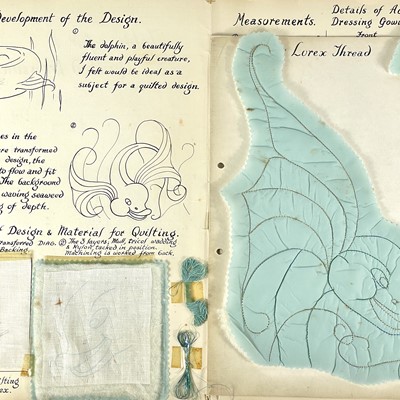 Development of the Design.
The dolphin, a beautifully
fluent and playful creature,
I felt would be ideal as a
subject for a quilted design.
es in the
re transformed
design, the
to flow and fit
The background
waving seaweed
g of depth.
Design & Material for Quilting.
Transferred Diag. ② The 3 layers, Mull, tricel wadding
Backing. & Nylon, tacked in position.
Machining is worked from back.
lting
ex.
Measurements.
Details of
Dressing Gow
Front
Lurex Thread